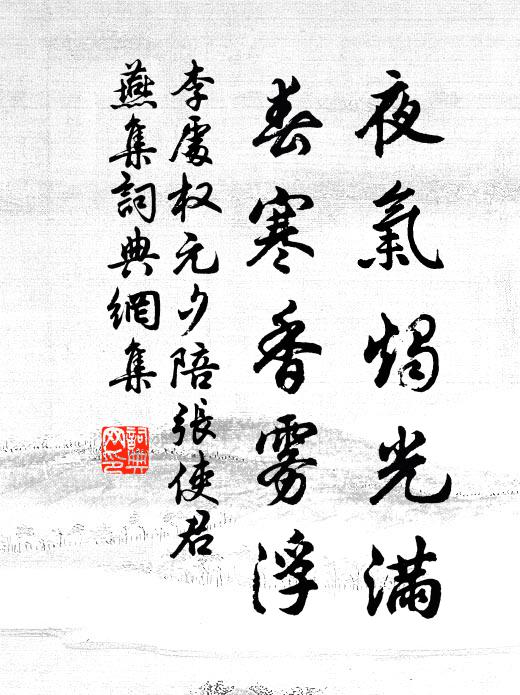 夜氣燭光滿
春寒香雾浮
李處权元夕陪張使君
燕集詞典網集
詞典
网印